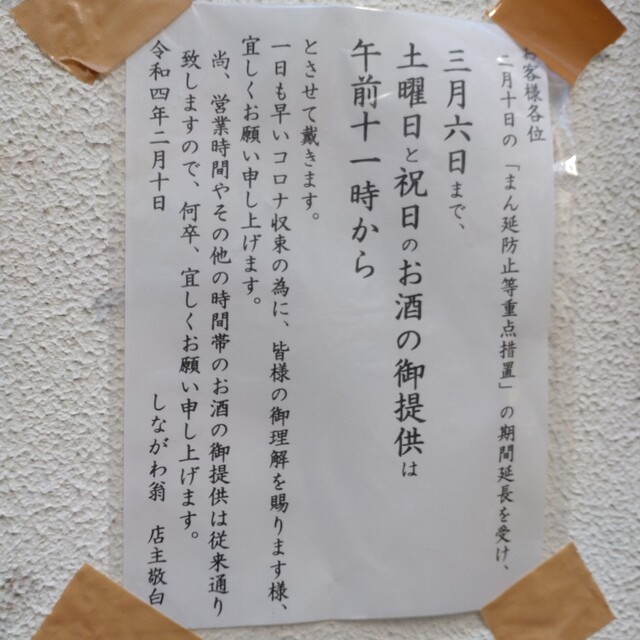 お客様各位
二月十日の「まん延防止等重点措置」の期間延長を受け、
三月六日まで、
土曜日と祝日のお酒の御提供は
午前十一時から
とさせて戴きます。
一日も早いコロナ収束の為に、皆様の御理解を賜ります様、
宜しくお願い申し上げます。
尚、営業時間やその他の時間帯のお酒の御提供は従来通り
致しますので、何卒、宜しくお願い申し上げます。
令和四年二月十日
しながわ翁 店主敬白